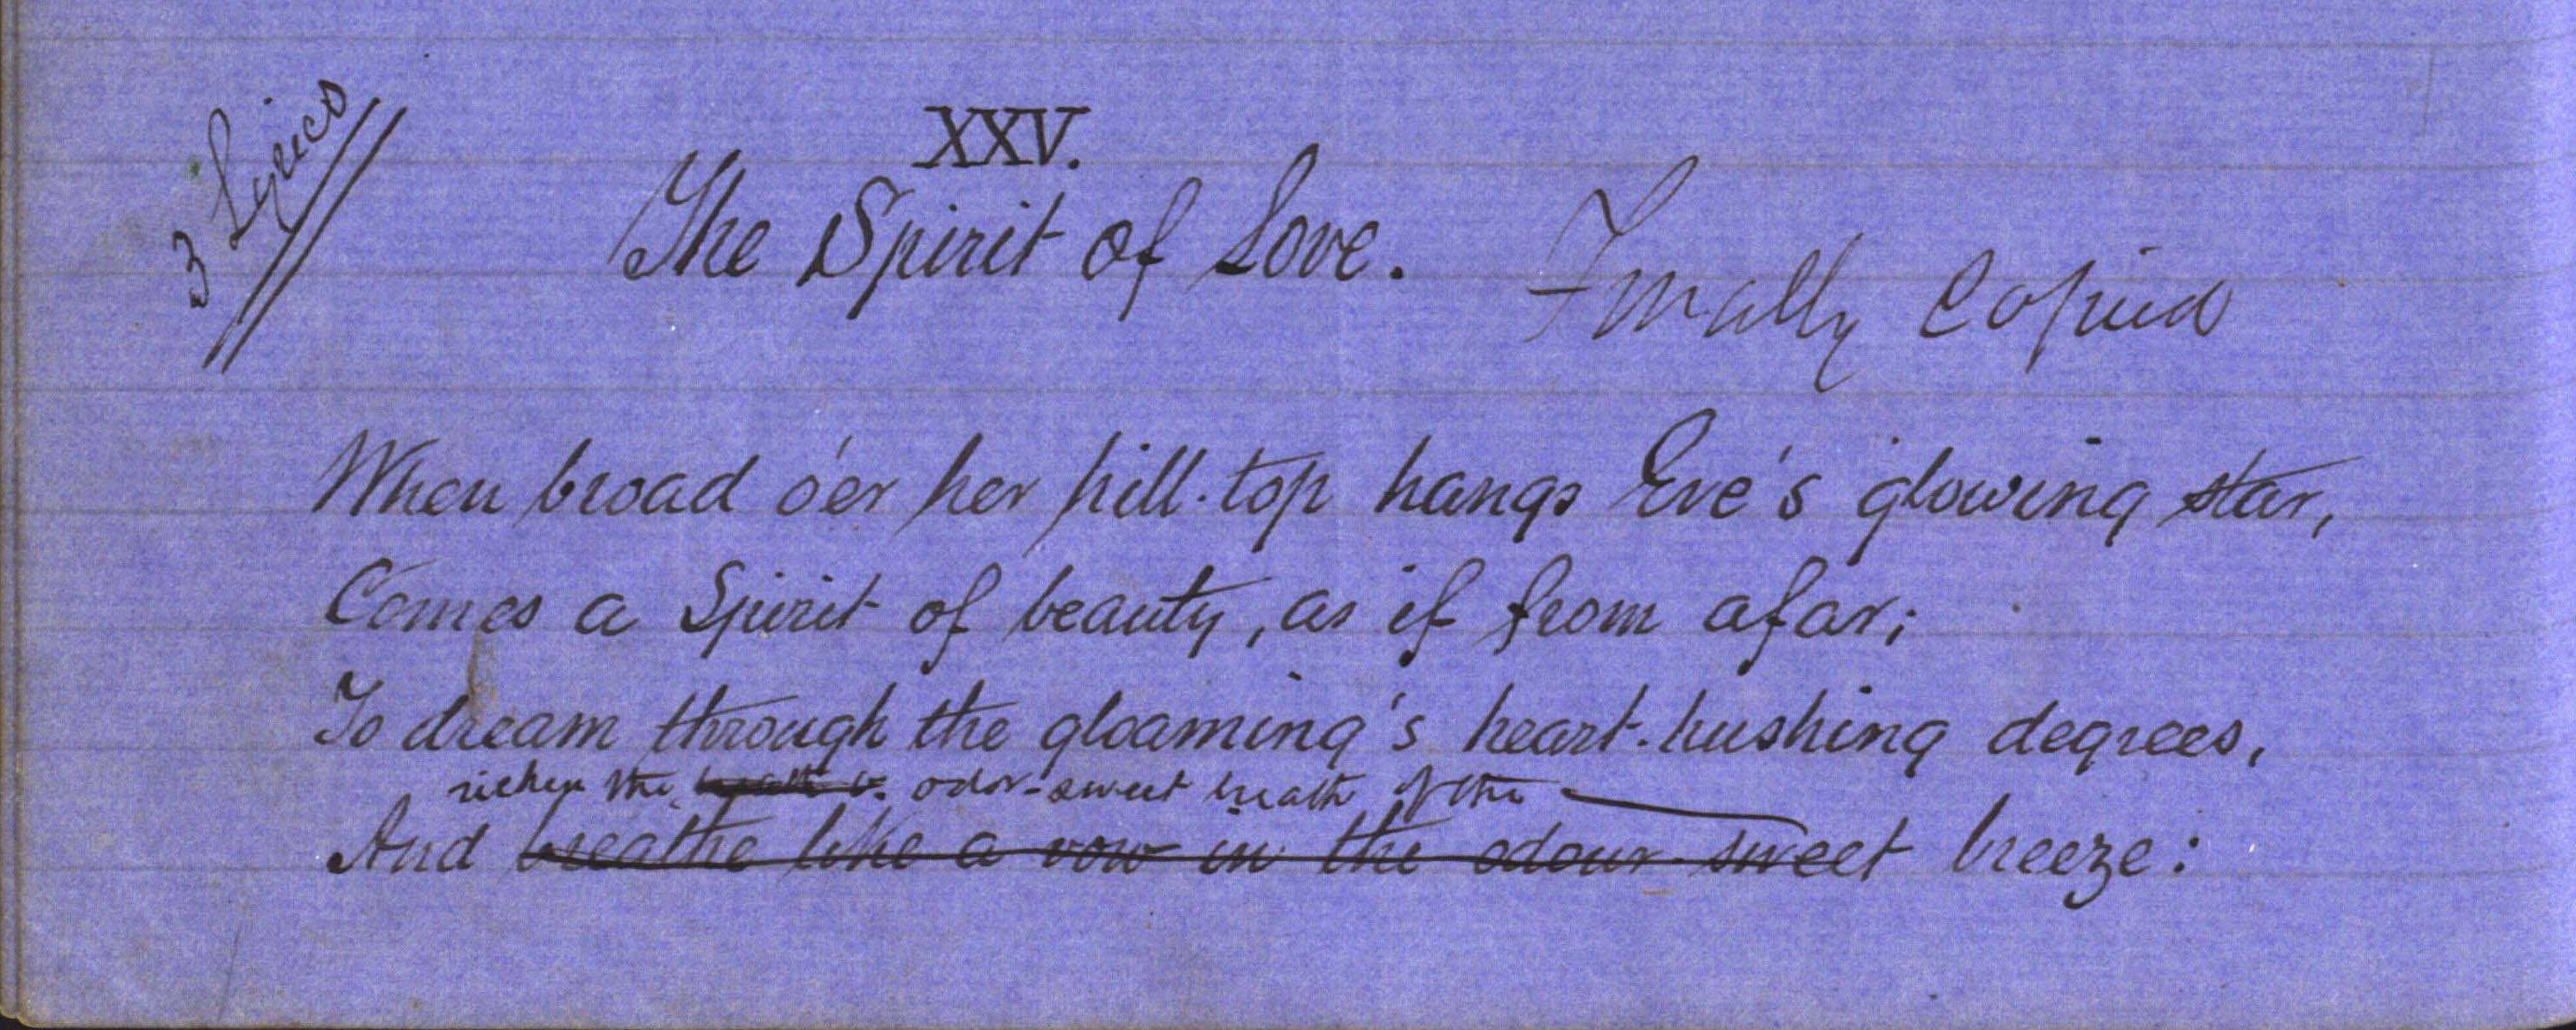 3 Lyrics
XXV.
The Spirit of Love.
Finally Copied
When broad o'er her hill-top hangs Eve's glowing star,
Comes a Spirit of beauty, as if from afar;
To dream through the gloaming's heart-hushing degrees,
richen the breath o odor-sweet breath of the
And breathe like a vow in the odour-sweet breeze: